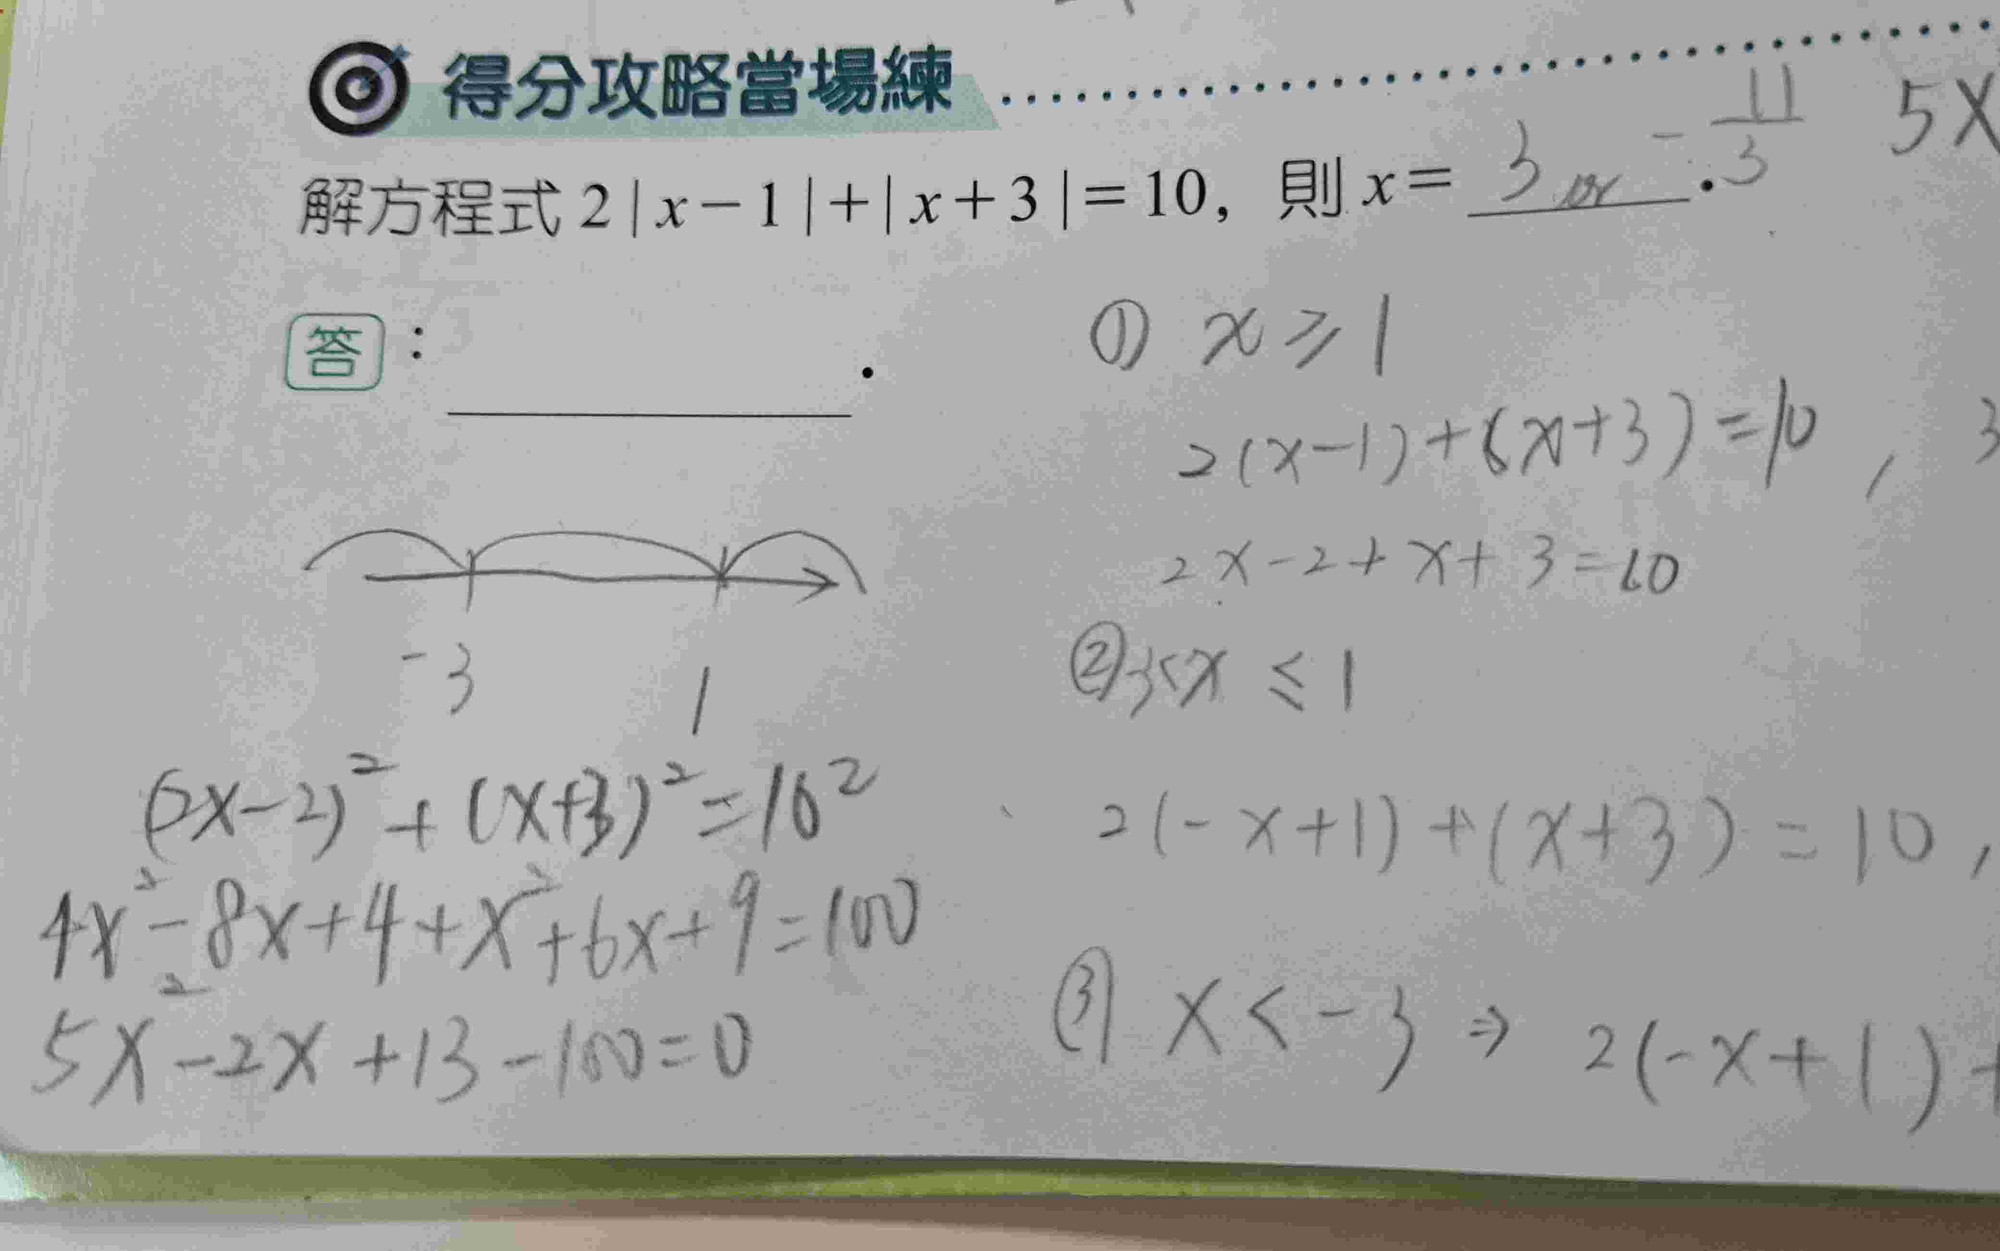 得分攻略當場練
解方程式 2|x−1|+|x+3|=10，則 x= 3 or −11/3 .
5X
答：
.
① x ≥ 1
2(x−1)+(x+3)=10 , 3
2x−2+x+3=10
-3 1
② -3<x ≤ 1
(2x−2)²+(x+3)²=10²
2(−x+1)+(x+3)=10 ,
4x²−8x+4+x²+6x+9=100
③ x<−3 ⇒ 2(−x+1)+
5x²−2x+13−100=0